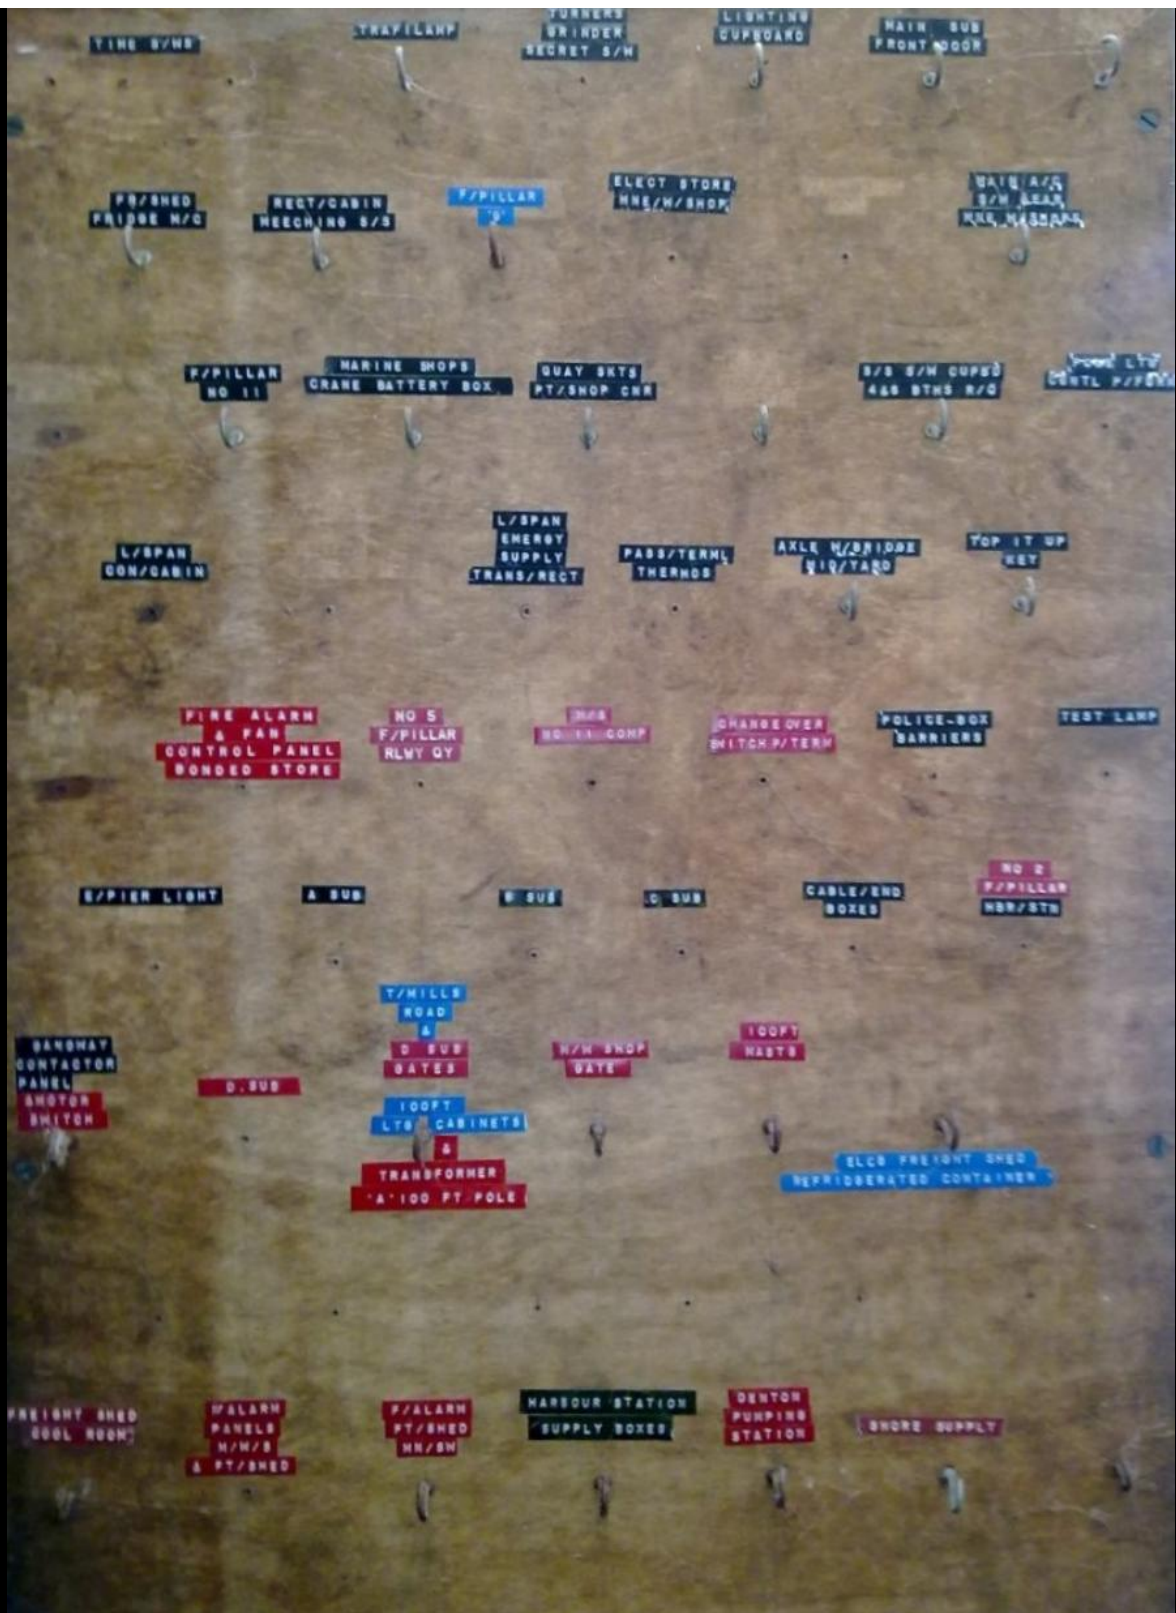 TIME S/WS
TRAFILAMP
TURNERS
GRINDER
SECRET S/W
LIGHTING
CUPBOARD
MAIN SUB
FRONT DOOR
FR/SHED
FRIDGE M/C
RECT/CABIN
HEECHING S/S
F/PILLAR
'9'
ELECT STORE
MNE/W/SHOP
MAIN A/C
S/W GEAR
MNE W/SHOPS
F/PILLAR
NO 11
MARINE SHOPS
CRANE BATTERY BOX
QUAY SKTS
PT/SHOP CNR
S/S S/W CUPBD
4&5 BTHS R/Q
LTG
CONTL P/FORM
L/SPAN
CON/CABIN
L/SPAN
ENERGY
SUPPLY
TRANS/RECT
PASS/TERML
THERMOS
AXLE W/BRIDGE
MID/YARD
TOP IT UP
KEY
FIRE ALARM
& FAN
CONTROL PANEL
BONDED STORE
NO 5
F/PILLAR
RLWY QY
NO 11 COMP
CHANGE OVER
SWITCH P/TERM
POLICE-BOX
BARRIERS
TEST LAMP
E/PIER LIGHT
A SUB
B SUB
C SUB
CABLE/END
BOXES
NO 2
F/PILLAR
HBR/STN
GANGWAY
CONTACTOR
PANEL
&MOTOR
SWITCH
D.SUB
T/MILLS
ROAD
&
D SUB
GATES
100FT
LTG CABINETS
&
TRANSFORMER
'A' 100 FT POLE
M/W SHOP
GATE
100FT
MASTS
ELCB FREIGHT SHED
REFRIDGERATED CONTAINER
FREIGHT SHED
COOL ROOM
F/ALARM
PANELS
M/W/S
& FT/SHED
F/ALARM
FT/SHED
MN/SW
HARBOUR STATION
SUPPLY BOXES
DENTON
PUMPING
STATION
SHORE SUPPLY